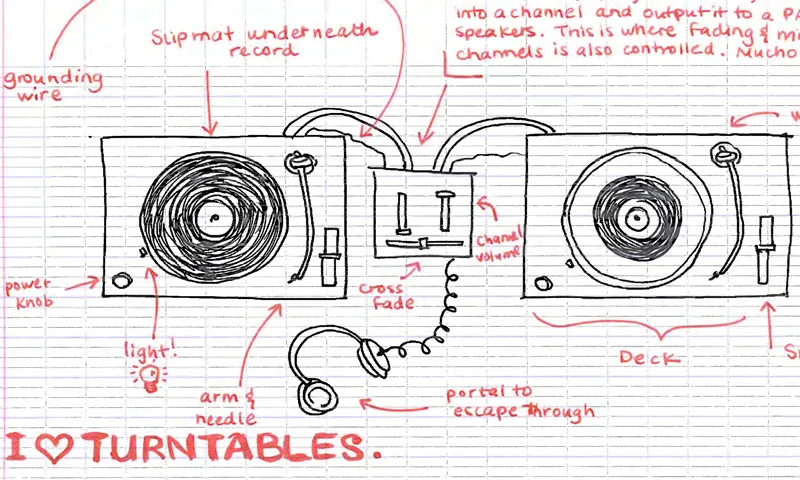 into a channel and output it to a PA
speakers. This is where fading &
channels is also controlled. Mucho
Slipmat underneath
record
grounding
wire
Channel
volume
power
knob
cross
fade
light!
Deck
arm &
needle
portal to
escape through
I ♡ TURNTABLES.